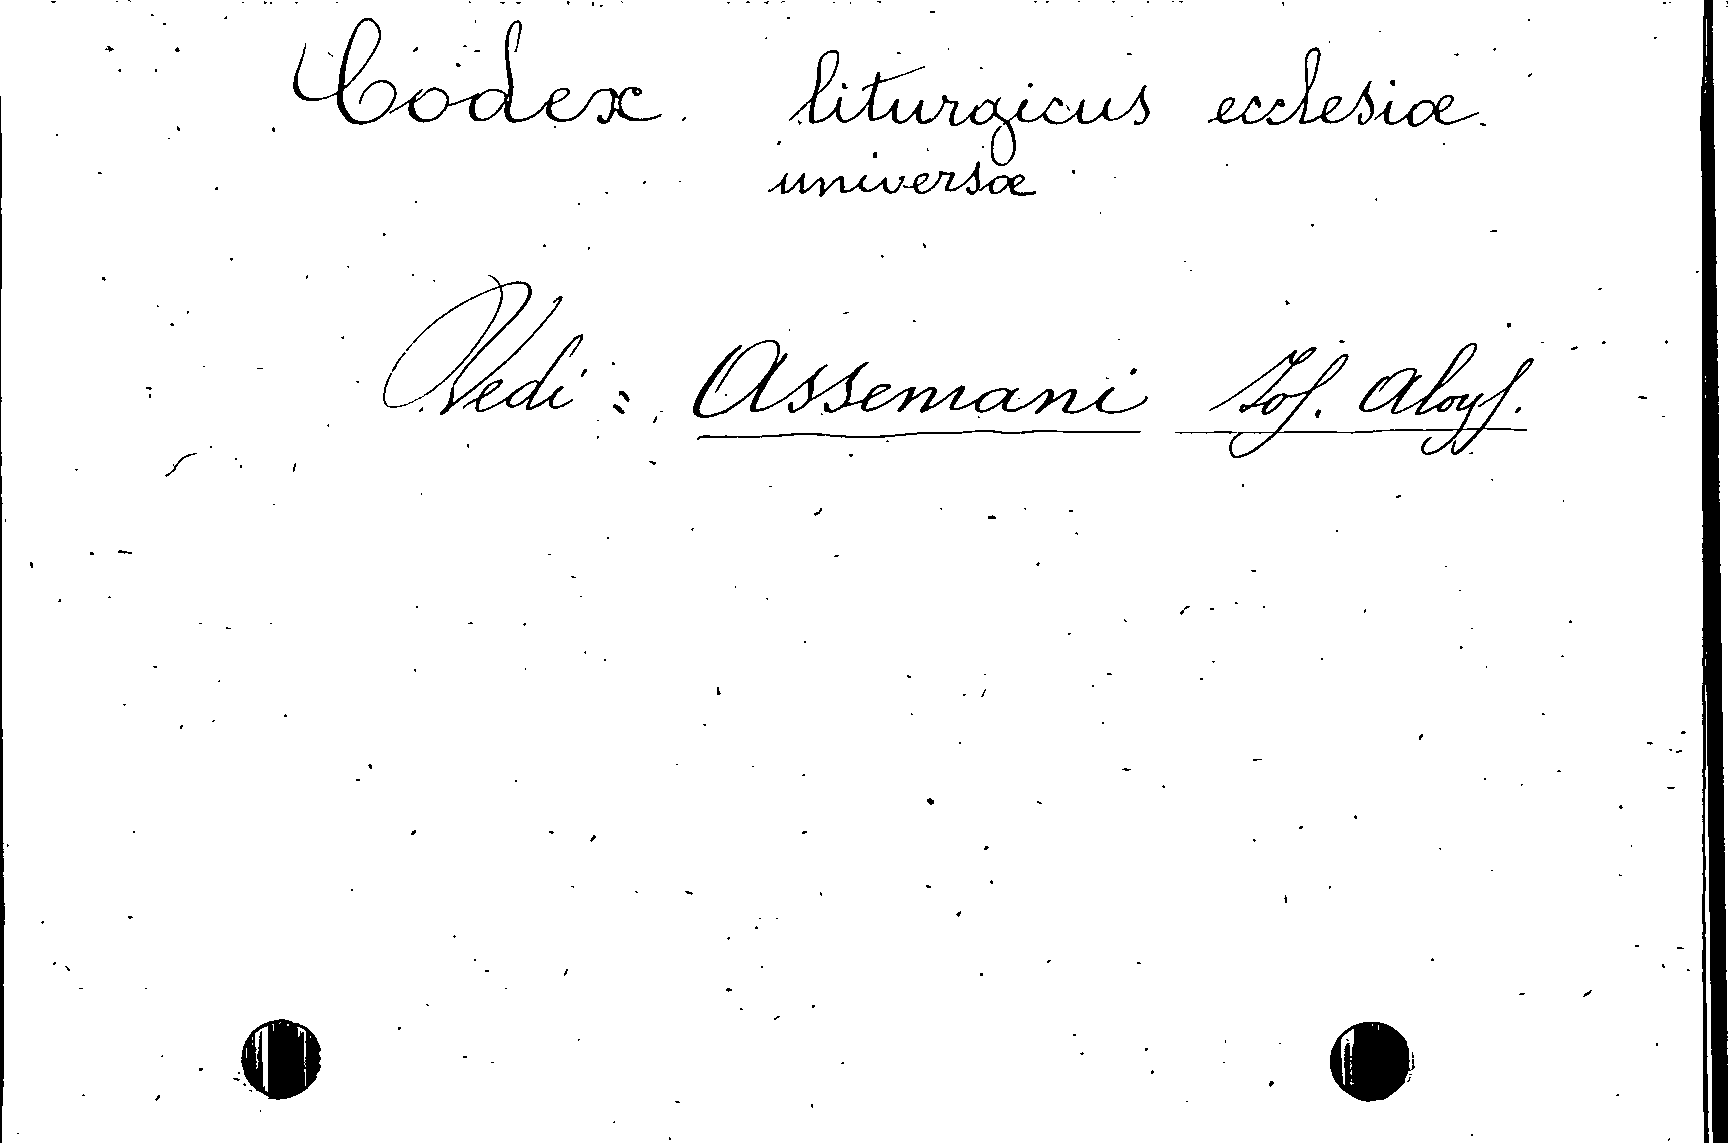 Codex liturgicus ecclesiæ
universæ
Vedi = Assemani Jos. Aloys.